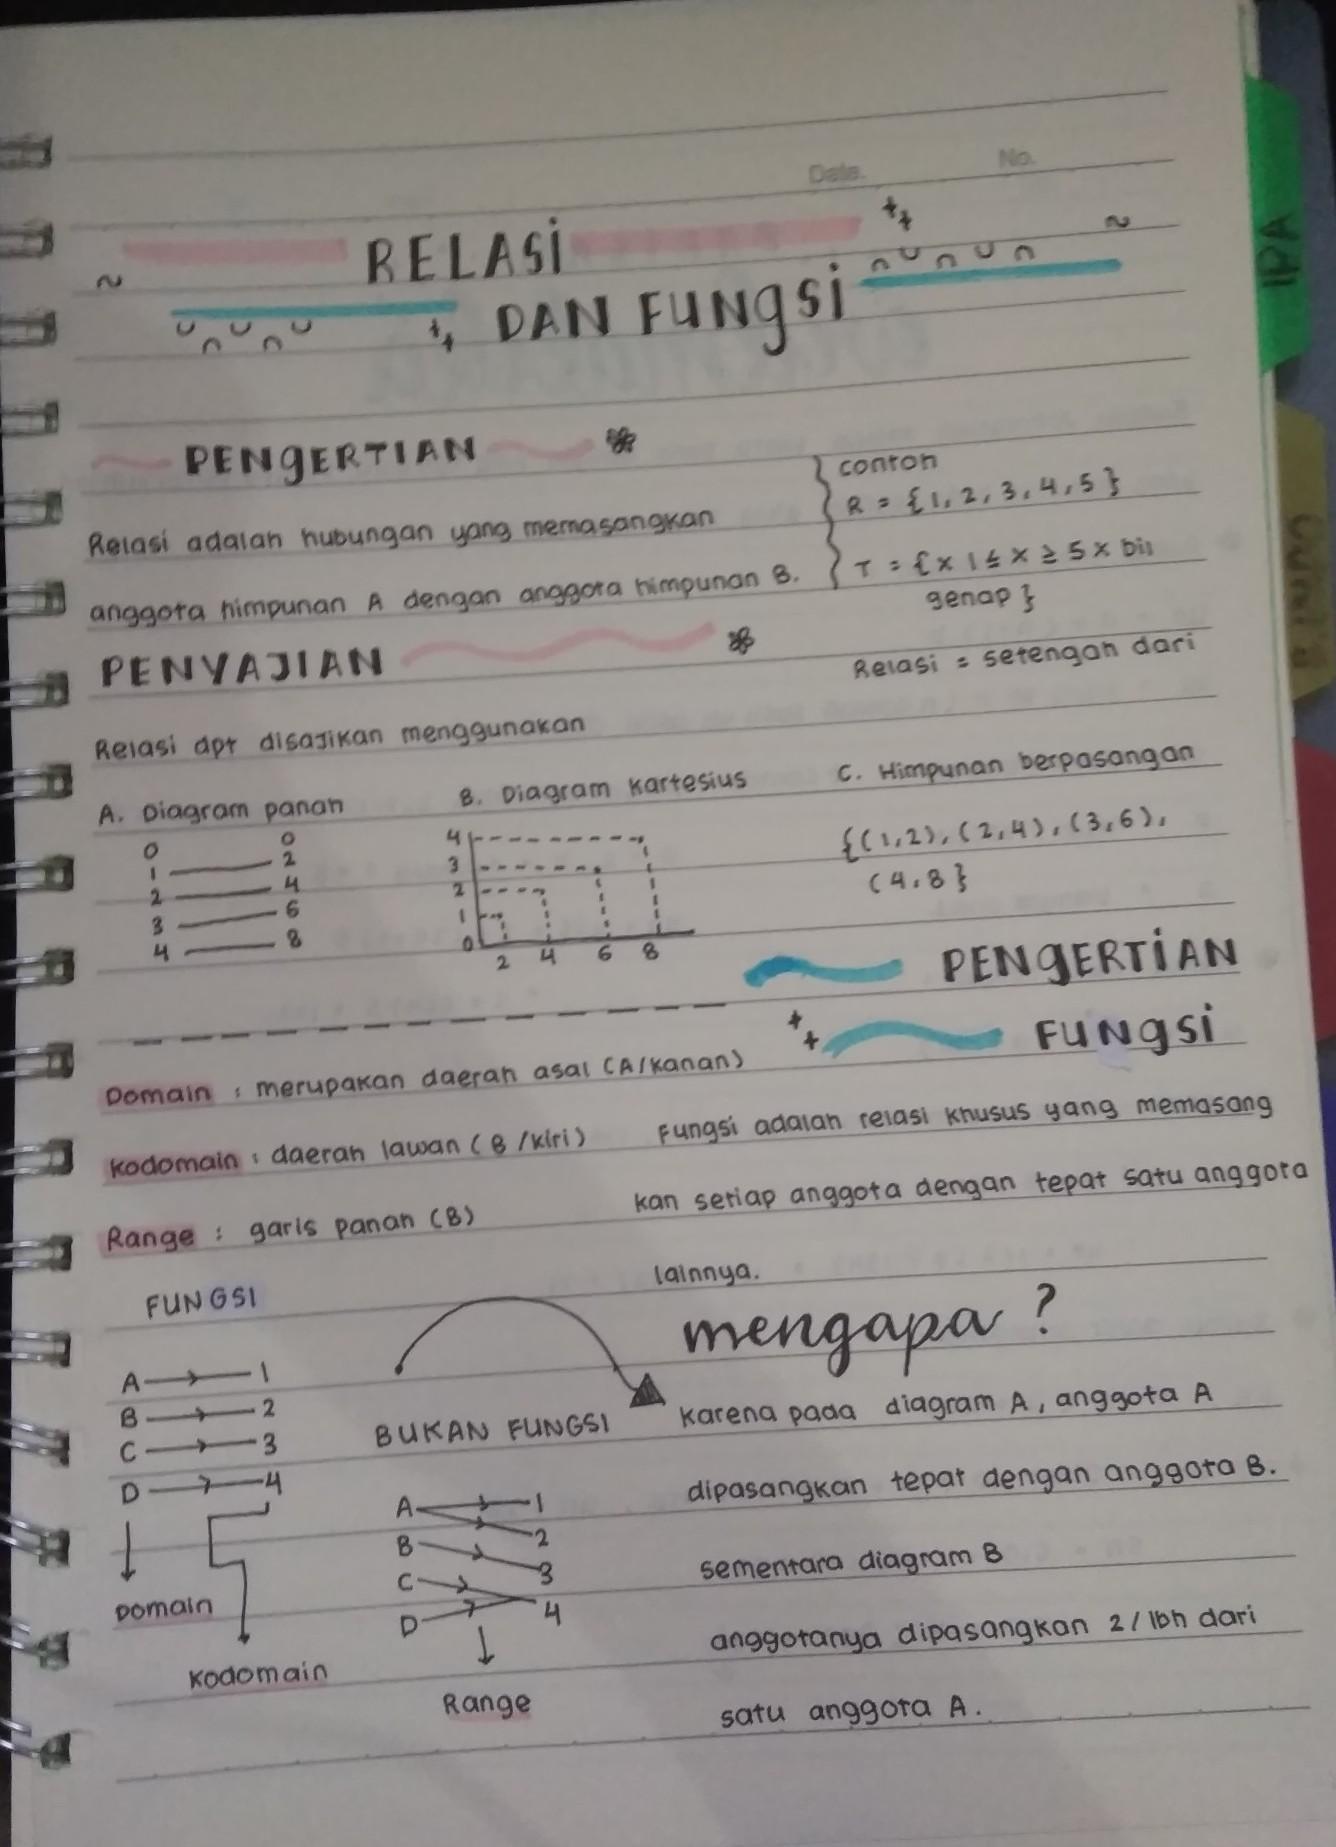 Date.
No.
RELASI
DAN FUNgSI
PENgERTIAN
Relasi adalah hubungan yang memasangkan
anggota himpunan A dengan anggota himpunan B.
contoh
R = {1, 2, 3, 4, 5}
T = {x 1 ≤ x ≥ 5 x bil
genap}
Relasi = setengah dari
PENYAJIAN
Relasi dpt disajikan menggunakan
A. Diagram panah
0 0
1 2
2 4
3 6
4 8
B. Diagram kartesius
4
3
2
1
0
2 4 6 8
C. Himpunan berpasangan
{(1,2), (2,4), (3,6),
(4,8}
Domain : merupakan daerah asal (A/kanan)
Kodomain : daerah lawan (B/kiri)
Range : garis panah (B)
PENgERTIAN
FUNgSI
Fungsi adalah relasi khusus yang memasang
kan setiap anggota dengan tepat satu anggota
lainnya.
FUNGSI
A 1
B 2
C 3
D 4
Domain
Kodomain
BUKAN FUNGSI
A 1
2
B
3
C
D 4
Range
mengapa?
karena pada diagram A, anggota A
dipasangkan tepat dengan anggota B.
sementara diagram B
anggotanya dipasangkan 2/lbh dari
satu anggota A.
IPA